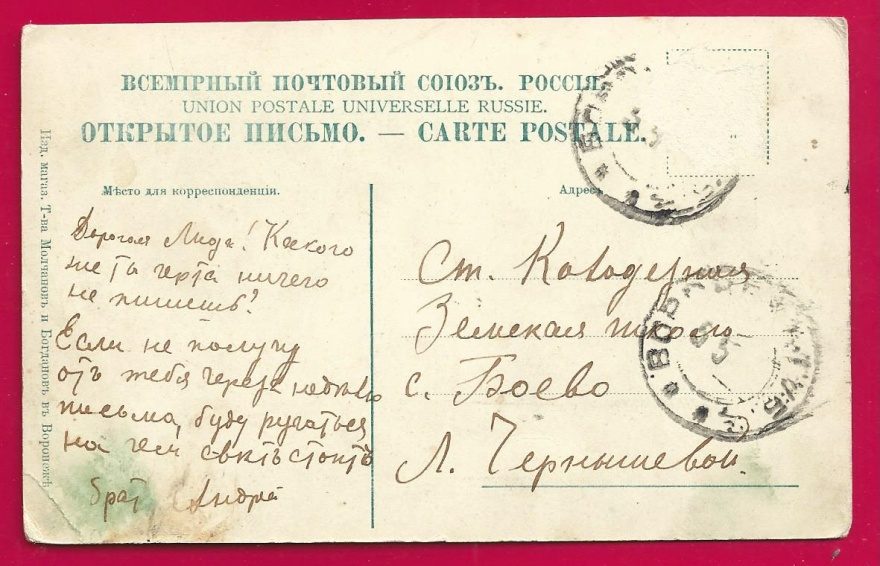 ВСЕМІРНЫЙ ПОЧТОВЫЙ СОЮЗЪ. РОССІЯ.
UNION POSTALE UNIVERSELLE RUSSIE.
ОТКРЫТОЕ ПИСЬМО. — CARTE POSTALE.
Мѣсто для корреспонденціи.
Адресъ
Дорогая Лида! Какого
же ты черта ничего
не пишешь?
Если не получу
отъ тебя черезъ недѣлю
письма, буду ругаться
на чем свѣтъ стоитъ
брат Андрей
Ст. Колодезная
Земская школа
с. Боево
Л. Чернышевой.
Изд. магаз. Т-ва Молчановъ и Богдановъ въ Воронежѣ